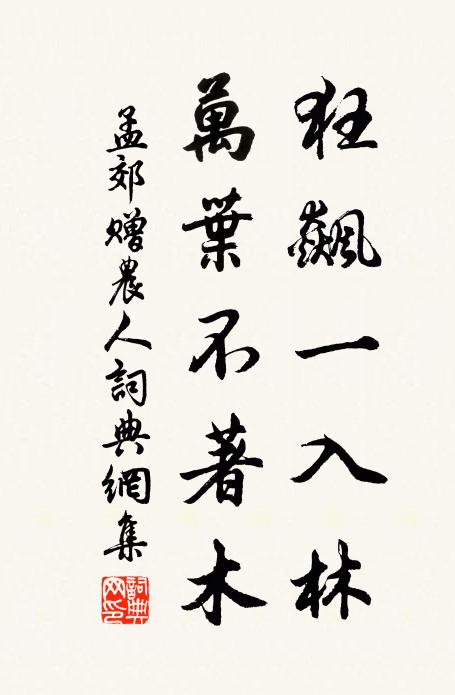 狂飆一入林
萬葉不著木
孟郊贈農人詞典網集
詞典网印